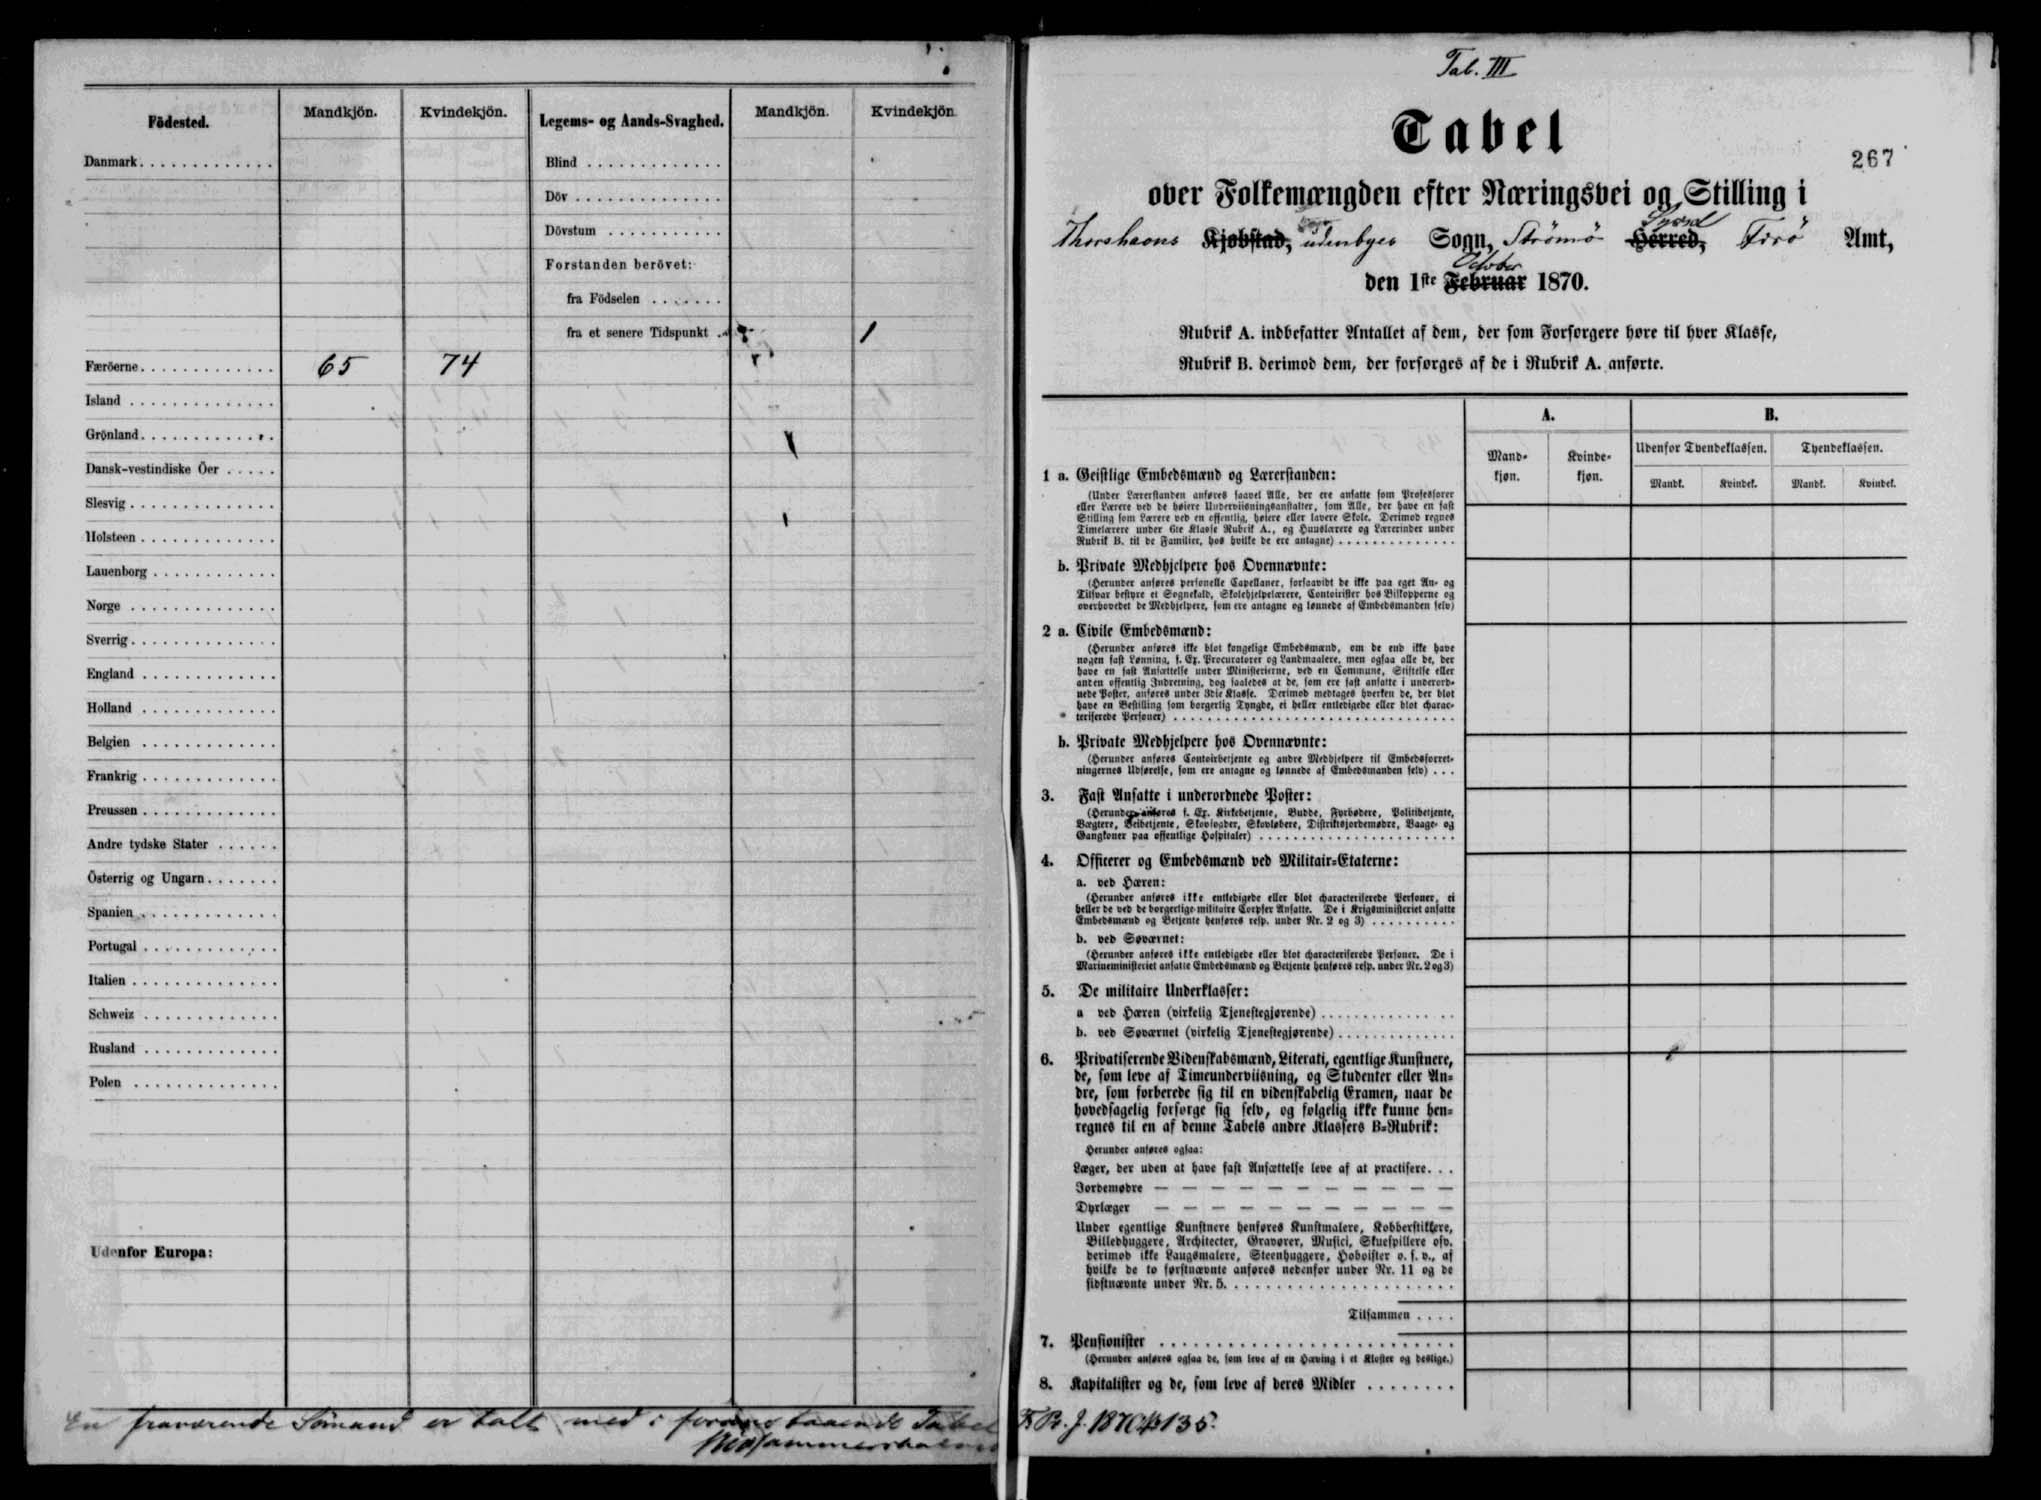 Födested.
Mandkjön.
Kvindekjön.
Legems- og Aands-Svaghed.
Mandkjön.
Kvindekjön.
Danmark
Blind
Döv
Dövstum
Forstanden berövet:
fra Födselen
fra et senere Tidspunkt 1
Færöerne 65 74
Island
Grönland
Dansk-vestindiske Öer
Slesvig
Holsteen
Lauenborg
Norge
Sverrig
England
Holland
Belgien
Frankrig
Preussen
Andre tydske Stater
Österrig og Ungarn
Spanien
Portugal
Italien
Schweiz
Rusland
Polen
Udenfor Europa:
En fraværende Sömand er talt med i foranstaaende Tabel
Tab. III
Tabel
267
over Folkemængden efter Næringsvei og Stilling i
Syssel
Thorshavns Kjøbstad, udenbyes Sogn, Strömö Herred, Færö Amt,
October
den 1ste Februar 1870.
Rubrik A. indbefatter Antallet af dem, der som Forsørgere høre til hver Klasse,
Rubrik B. derimod dem, der forsørges af de i Rubrik A. anførte.
A.
B.
Mand-
kjøn.
Kvinde-
kjøn.
Udenfor Tyendeklassen.
Tyendeklassen.
Mandk.
Kvindek.
Mandk.
Kvindek.
1 a. Geistlige Embedsmænd og Lærerstanden:
(Under Lærerstanden anføres saavel Alle, der ere ansatte som Professorer
eller Lærere ved de høiere Underviisningsanstalter, som Alle, der have en fast
Stilling som Lærere ved en offentlig, høiere eller lavere Skole. Derimod regnes
Timelærere under 6te Klasse Rubrik A., og Huuslærere og Lærerinder under
Rubrik B. til de Familier, hos hvilke de ere antagne)
b. Private Medhjelpere hos Ovennævnte:
(Herunder anføres personelle Capellaner, forsaavidt de ikke paa eget An- og
Tilsvar bestyre et Sognekald, Skolehjelpelærere, Contoirister hos Biskopperne og
overhovedet de Medhjelpere, som ere antagne og lønnede af Embedsmanden selv)
2 a. Civile Embedsmænd:
(Herunder anføres ikke blot kongelige Embedsmænd, om de end ikke have
nogen fast Lønning, f. Ex. Procuratorer og Landmaalere, men ogsaa alle de, der
have en fast Ansættelse under Ministerierne, ved en Commune, Stiftelse eller
anden offentlig Indretning, dog saaledes at de, som ere fast ansatte i underord-
nede Poster, anføres under 3die Klasse. Derimod medtages hverken de, der blot
have en Bestilling som borgerlig Tyngde, ei heller entledigede eller blot charac-
teriserede Personer)
b. Private Medhjelpere hos Ovennævnte:
(Herunder anføres Contoirbetjente og andre Medhjelpere til Embedsforret-
ningernes Udførelse, som ere antagne og lønnede af Embedsmanden selv)
3. Fast Ansatte i underordnede Poster:
(Herunder anføres f. Ex. Kirkebetjente, Budde, Fyrbødere, Politibetjente,
Vægtere, Veibetjente, Skovfogder, Skovløbere, Distriktsjordemødre, Vaage- og
Gangkoner paa offentlige Hospitaler)
4. Officerer og Embedsmænd ved Militair-Etaterne:
a. ved Hæren:
(Herunder anføres ikke entledigede eller blot characteriserede Personer, ei
heller de ved de borgerlige-militaire Corpser Ansatte. De i Krigsministeriet ansatte
Embedsmænd og Betjente henføres resp. under Nr. 2 og 3)
b. ved Søværnet:
(Herunder anføres ikke entledigede eller blot characteriserede Personer. De i
Marineministeriet ansatte Embedsmænd og Betjente henføres resp. under Nr. 2 og 3)
5. De militaire Underklasser:
a ved Hæren (virkelig Tjenestegjørende)
b. ved Søværnet (virkelig Tjenestegjørende)
6. Privatiserende Videnskabsmænd, Literati, egentlige Kunstnere,
de, som leve af Timeunderviisning, og Studenter eller An-
dre, som forberede sig til en videnskabelig Examen, naar de
hovedsagelig forsørge sig selv, og følgelig ikke kunne hen-
regnes til en af denne Tabels andre Klassers B-Rubrik:
Herunder anføres ogsaa:
Læger, der uden at have fast Ansættelse leve af at practisere.
Jordemødre — — — — — — — — — — —
Dyrlæger — — — — — — — — — — —
Under egentlige Kunstnere henføres Kunstmalere, Kobberstikkere,
Billedhuggere, Architecter, Gravører, Musici, Skuespillere osv.
derimod ikke Laugsmalere, Steenhuggere, Hoboister o. s. v., af
hvilke de to førstnævnte anføres nedenfor under Nr. 11 og de
sidstnævnte under Nr. 5.
Tilsammen
7. Pensionister
(Herunder anføres ogsaa de, som leve af en Hæving i et Kloster og deslige.)
8. Kapitalister og de, som leve af deres Midler